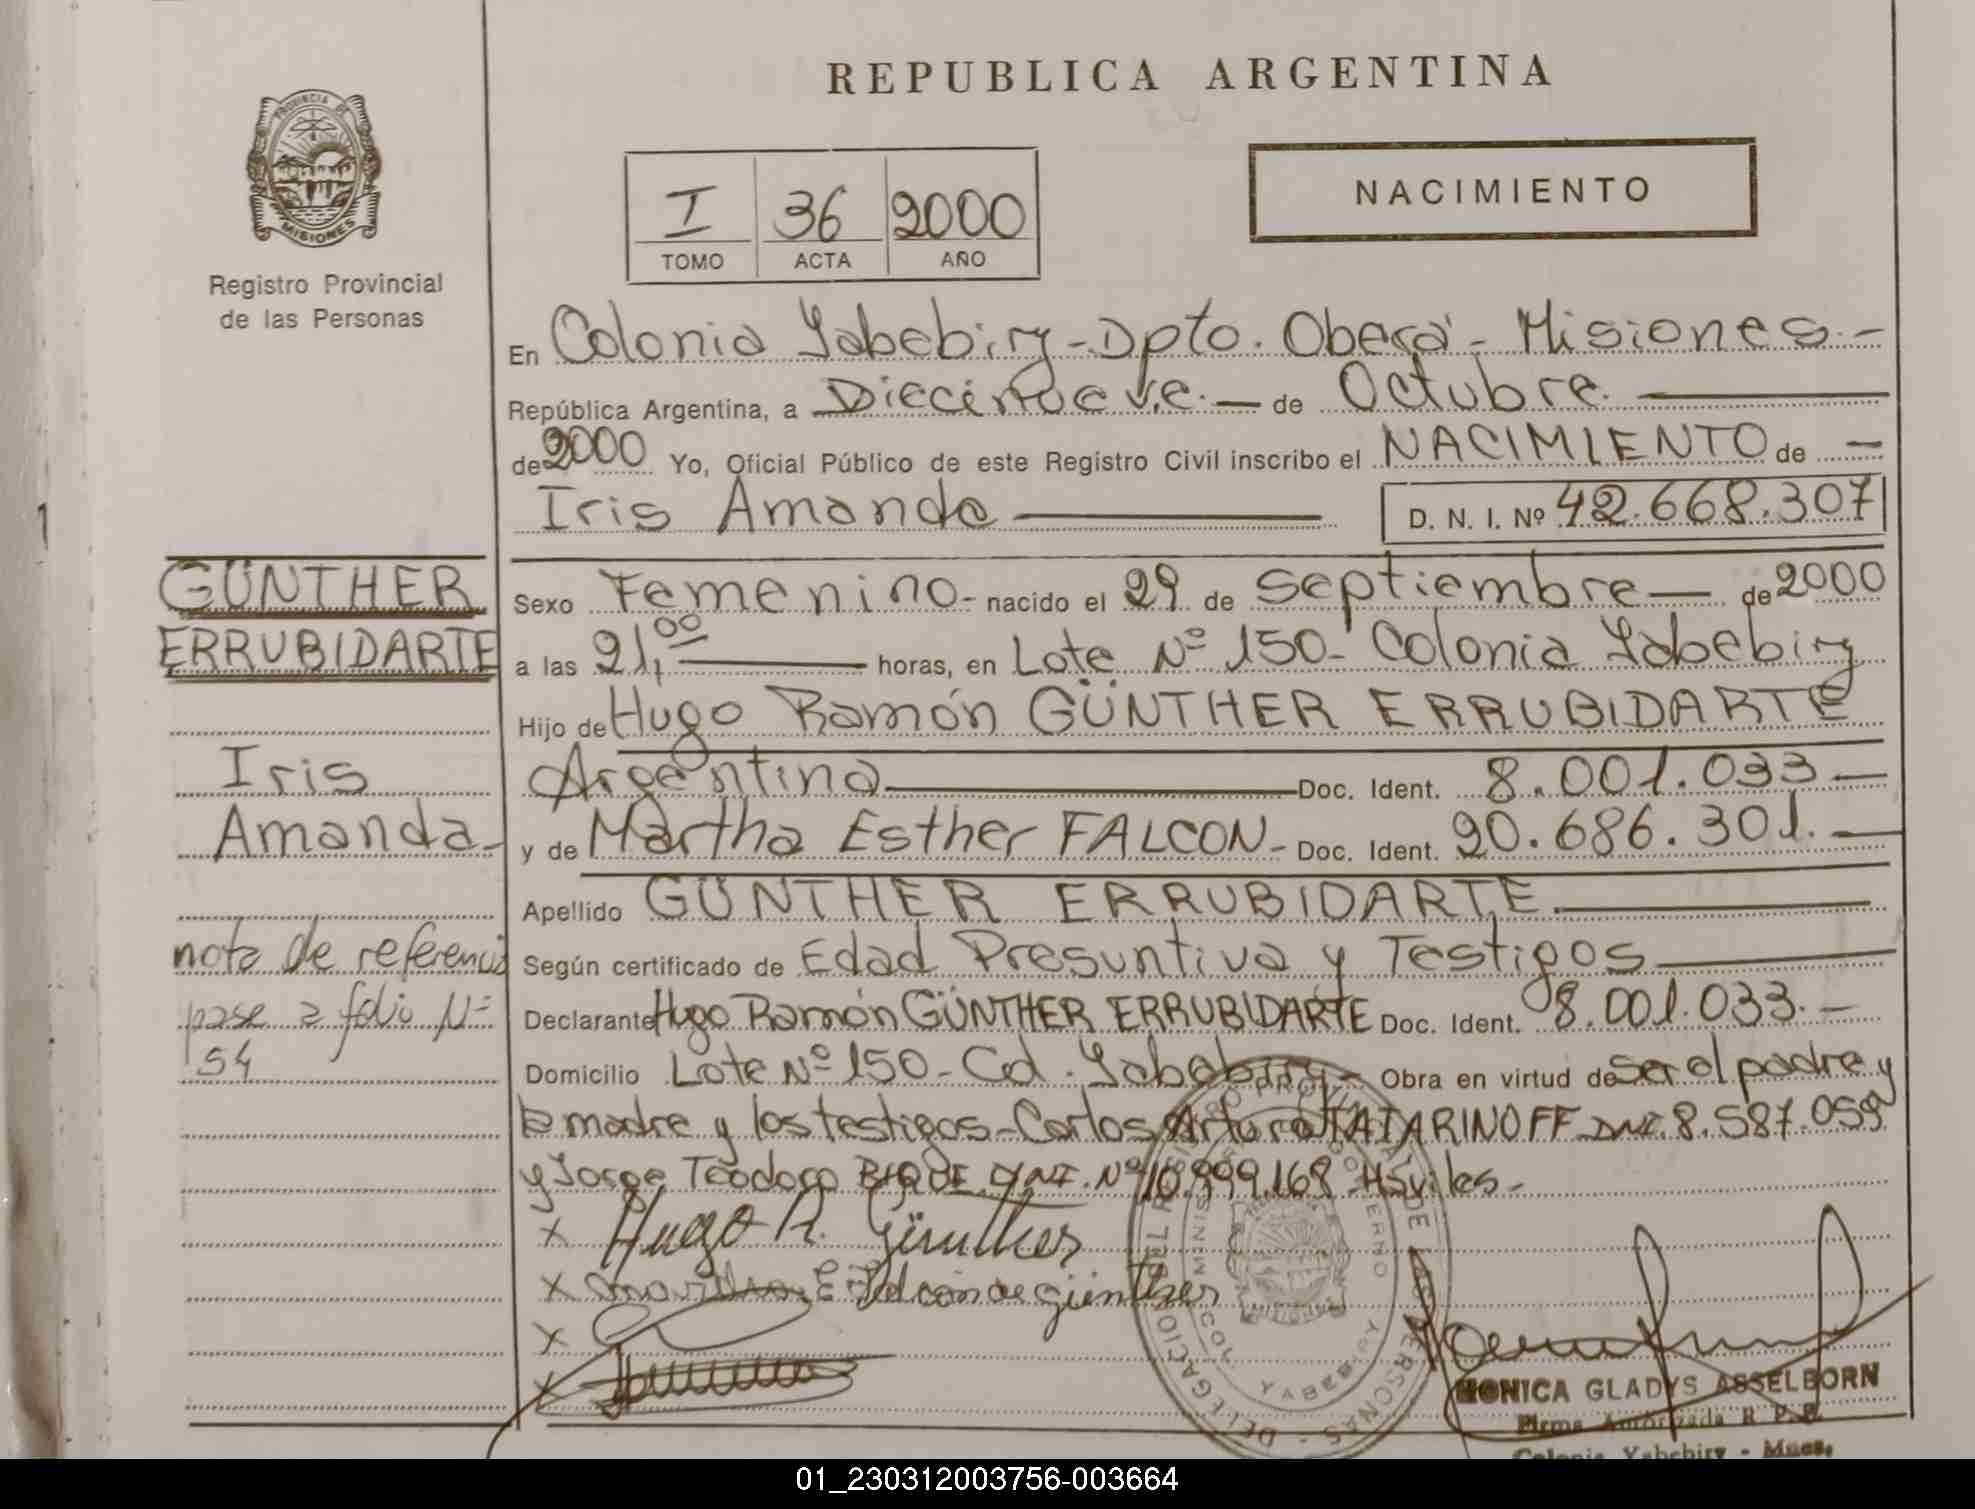 REPUBLICA ARGENTINA
PROVINCIA DE
MISIONES
Registro Provincial
de las Personas
I 36 2000
TOMO ACTA AÑO
NACIMIENTO
En Colonia Yabebiry - Dpto. Oberá - Misiones -
República Argentina, a Diecinueve - de Octubre
de 2000 Yo, Oficial Público de este Registro Civil inscribo el NACIMIENTO de -
Iris Amanda D. N. I. Nº 42.668.307
GÜNTHER
ERRUBIDARTE
Iris
Amanda -
nota de referencia
pase a folio Nº
54
Sexo Femenino - nacido el 29 de Septiembre - de 2000
a las 21,00 horas, en Lote Nº 150 - Colonia Yabebiry
Hijo de Hugo Ramón GÜNTHER ERRUBIDARTE
Argentina Doc. Ident. 8.001.033 -
y de Martha Esther FALCON - Doc. Ident. 20.686.301. -
Apellido GÜNTHER ERRUBIDARTE.
Según certificado de Edad Presuntiva y Testigos
Declarante Hugo Ramón GÜNTHER ERRUBIDARTE Doc. Ident. 8.001.033. -
Domicilio Lote Nº 150 - Col. Yabebiry - Obra en virtud de ser el padre y
la madre y los testigos - Carlos Arturo TATARINOFF DNI. 8.587.059
y Jorge Teodoro DNI. Nº 10.999.168
x Hugo R. Günther
x Martha E. Falcón de Günther
x
x
MONICA GLADYS ASSELBORN
Firma Autorizada R. P. P.
Colonia Yabebiry - Mnes.
01_230312003756-003664